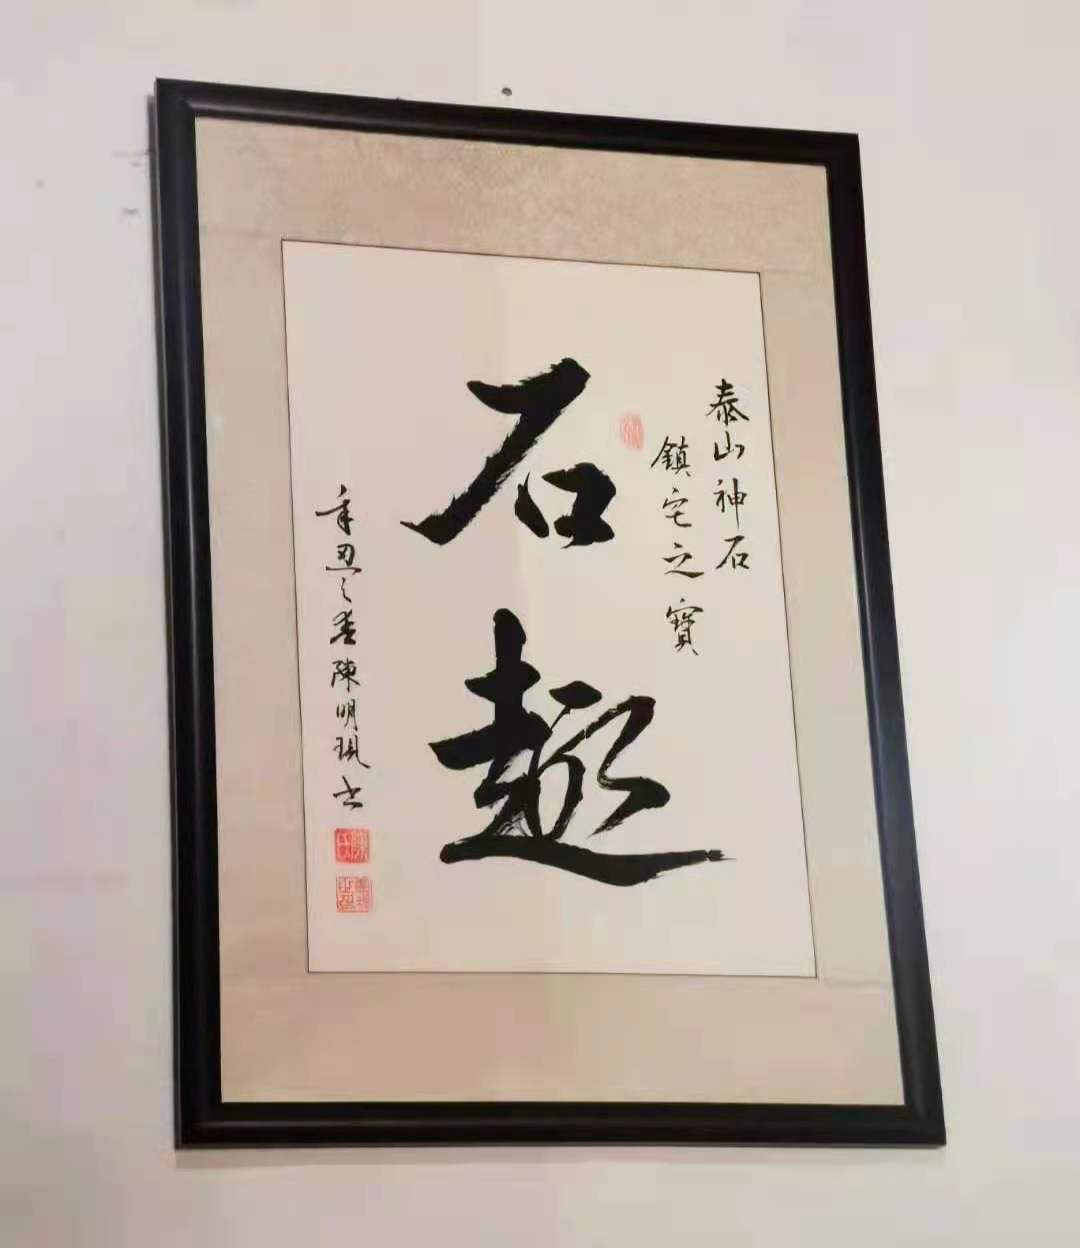 泰山神石
鎮宅之寶
石趣
辛丑之春陳明珮书